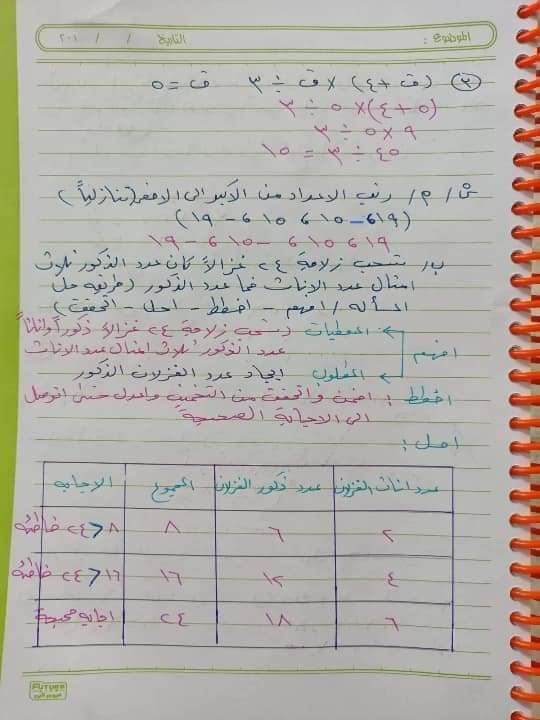 الموضوع :   التاريخ   /   /   ٢٠١
٢) (ف + ٤) × ف ÷ ٣   ف = ٥
(٥ + ٤) × ٥ ÷ ٣
٩ × ٥ ÷ ٣
٤٥ ÷ ٣ = ١٥
رتب الاعداد من الاكبر الى الاصغر (تنازلياً)
(١٩ ، -١٥ ، ١٥ ، -١٩)
١٩ ، ١٥ ، -١٥ ، -١٩
ب/ تسحب زلاجة ٢٤ غزالاً كان عدد الذكور ثلاث
امثال عدد الاناث فما عدد الذكور (طريقه حل
المسأله / افهم - اخطط - احل - اتحقق)
افهم
المعطيات (تسحب زلاجة ٢٤ غزالاً ذكور أو اناثاً
عدد الذكور ثلاث امثال عدد الاناث
المطلوب ايجاد عدد الغزلان الذكور
اخطط : اخمن واتحقق من التخمين واعدل حتى اتوصل
الى الاجابة الصحيحة
احل :
عدد اناث الغزلان   عدد ذكور الغزلان   المجموع   الاجابه
٢   ٦   ٨   ٨ < ٢٤ خاطئه
٤   ١٢   ١٦   ١٦ < ٢٤ خاطئه
٦   ١٨   ٢٤   اجابه صحيحة
FUTURE